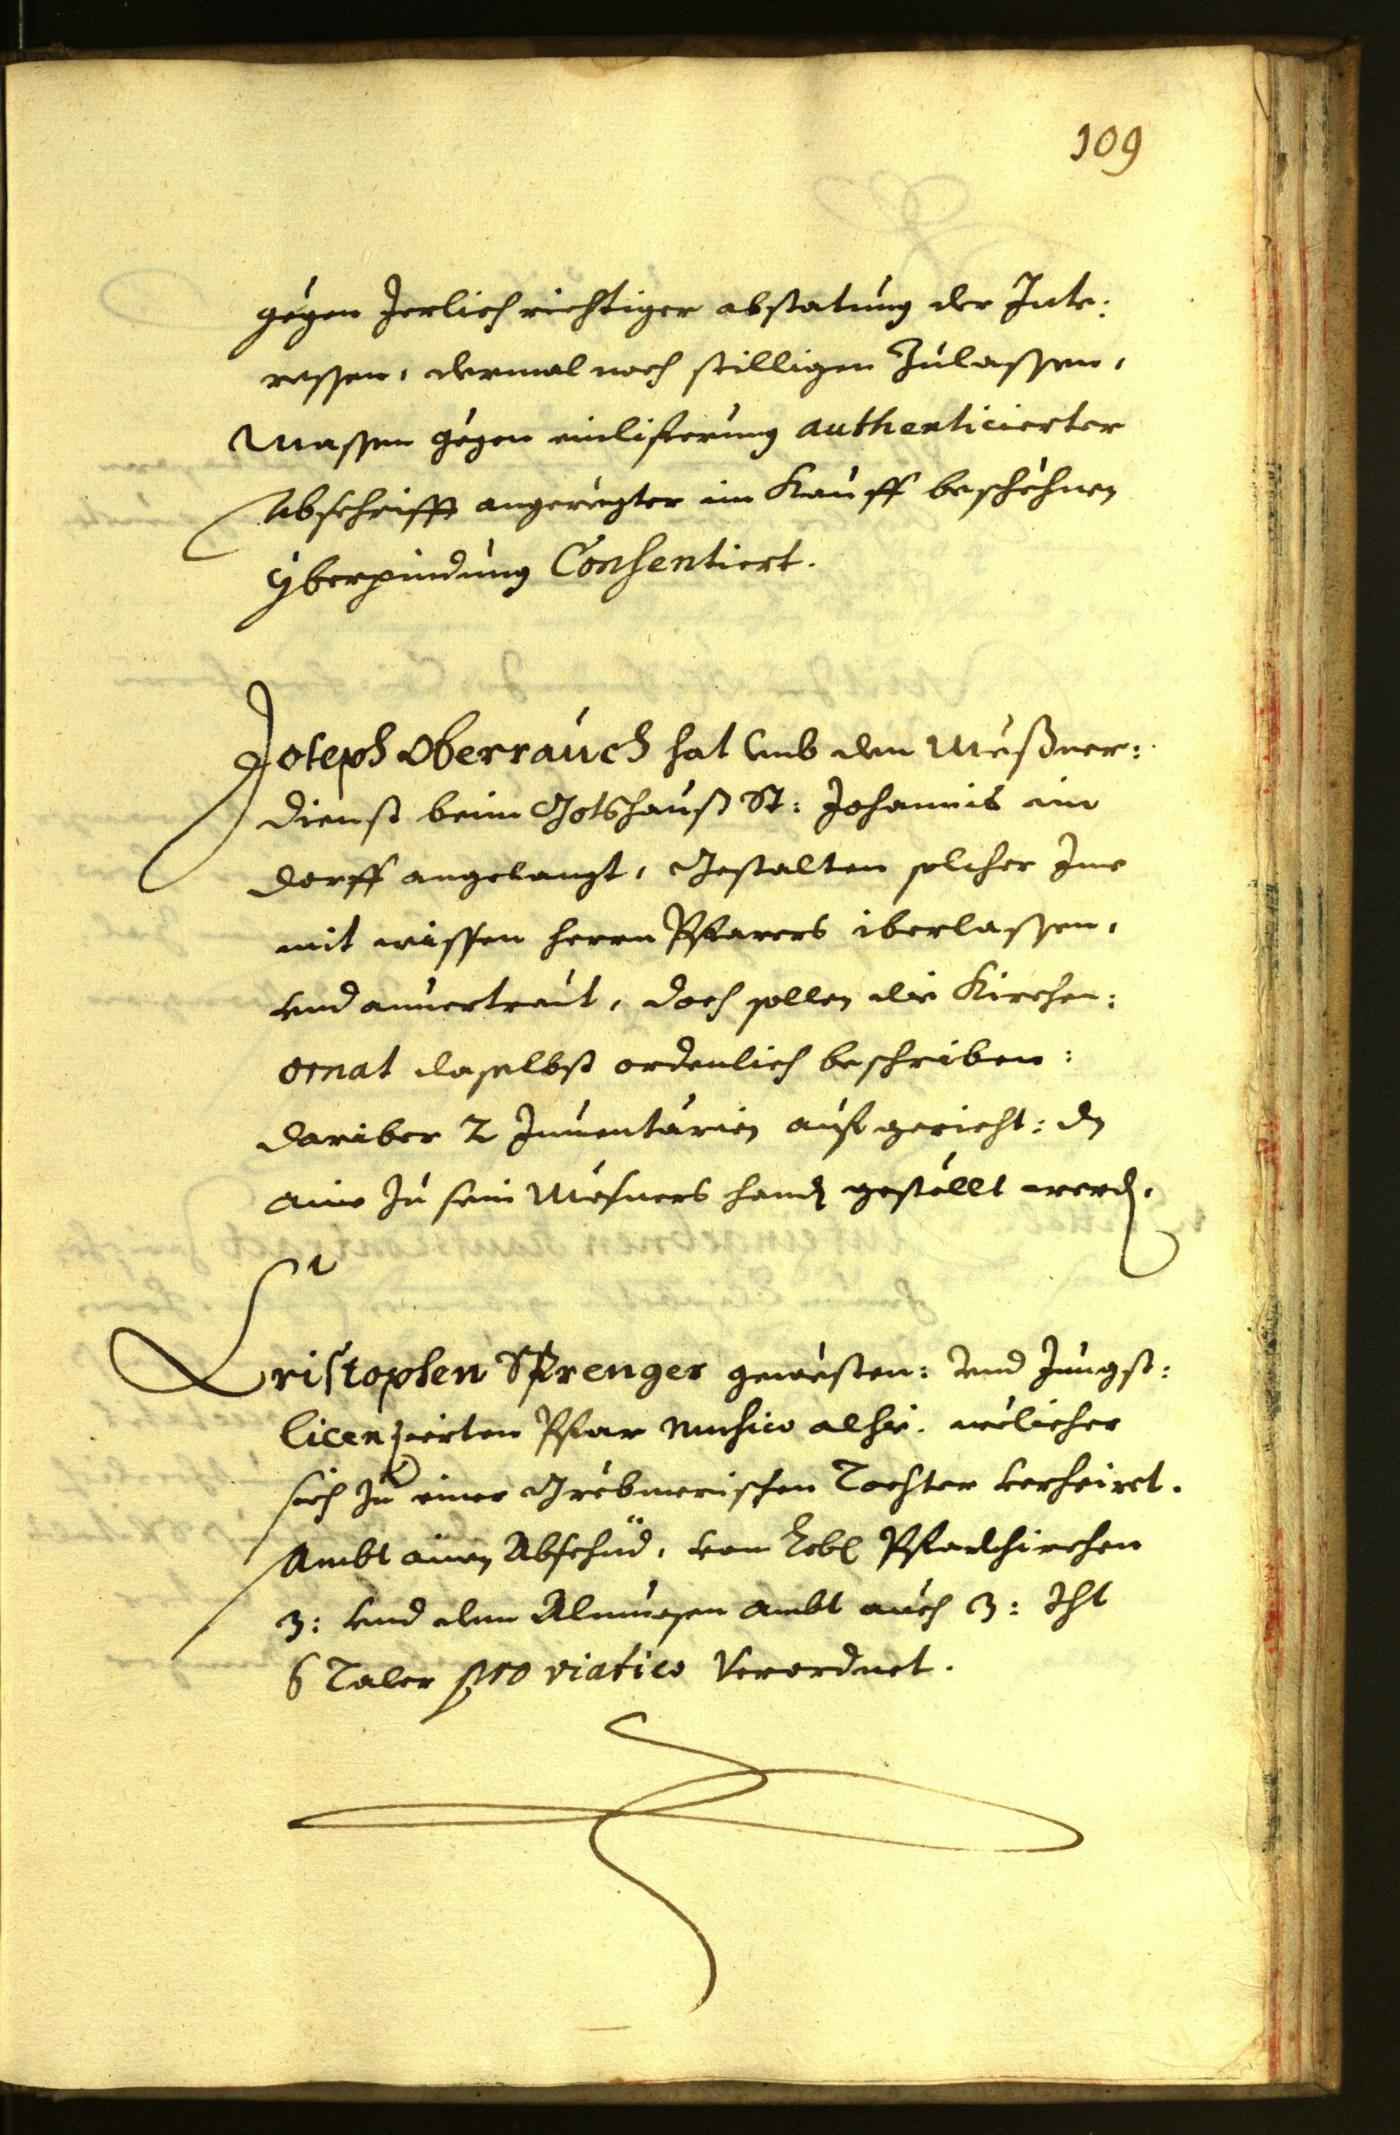 109
gegen Jerlich richtiger abstatung der Inte:
ressen, dermal noch stilligen Zulassen,
Massen gegen einlifferung authenticierter
Abschrifft angeregter im Kauff beschehnen
yberpindung Consentiert.
Joseph Oberrauch hat umb den Meßner:
dienst beim Gotshauß St: Johannis im
dorff angelangt, Gestalten solcher Ime
mit wissen herrn Pfarers iberlassen,
und anuertraut, doch sollen die Kirchen:
ornat daselbst ordenlich beschriben:
dariber 2 Inuentarien aufgericht: dz
aine zu sein Mesners handen gestellt werden.
Cristophen Sprenger gewesten: und Jungst:
licenzierten Pfar Musico alhie. welicher
sich zu einer Grebmerischen Tochter verheiret.
Umbt ainen Abschid, vom Lobl Pfarkhirchen
3: und dem Almuesen ambt auch 3: Tht
6 Taler pro viatico Verordnet.